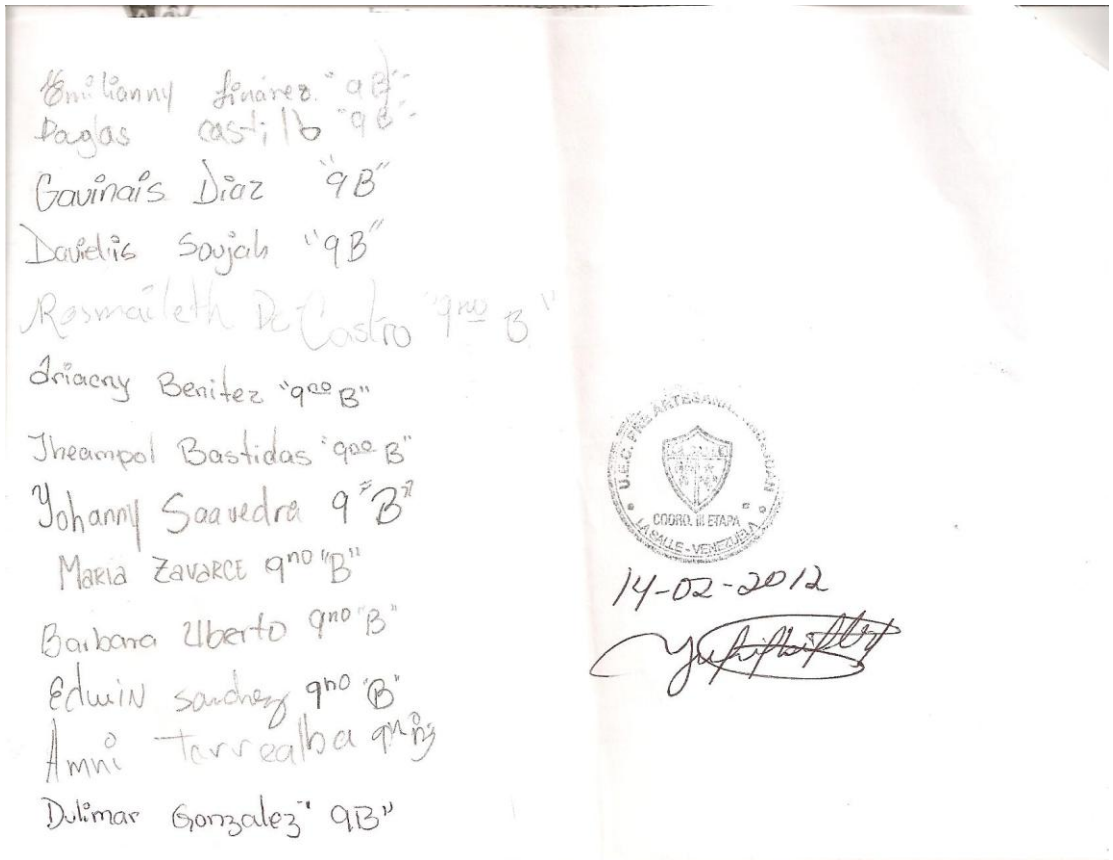 Emilianny Linárez "9B"
Daglas Castillo "9B"
Gavinais Diaz "9B"
Davielis Soujah "9B"
Rosmaileth De Castro "9no B"
Ariacny Benitez "9no B"
Jheampol Bastidas "9no B"
Yohanny Saavedra 9 "B"
Maria Zavarce 9no "B"
Barbara Uberto 9no "B"
Edwin Sanchez 9no "B"
Amni Torrealba
Dulimar Gonzalez "9B"
U.E.C. PRE ARTESANAL
COORD. III ETAPA
LA SALLE - VENEZUELA
14-02-2012